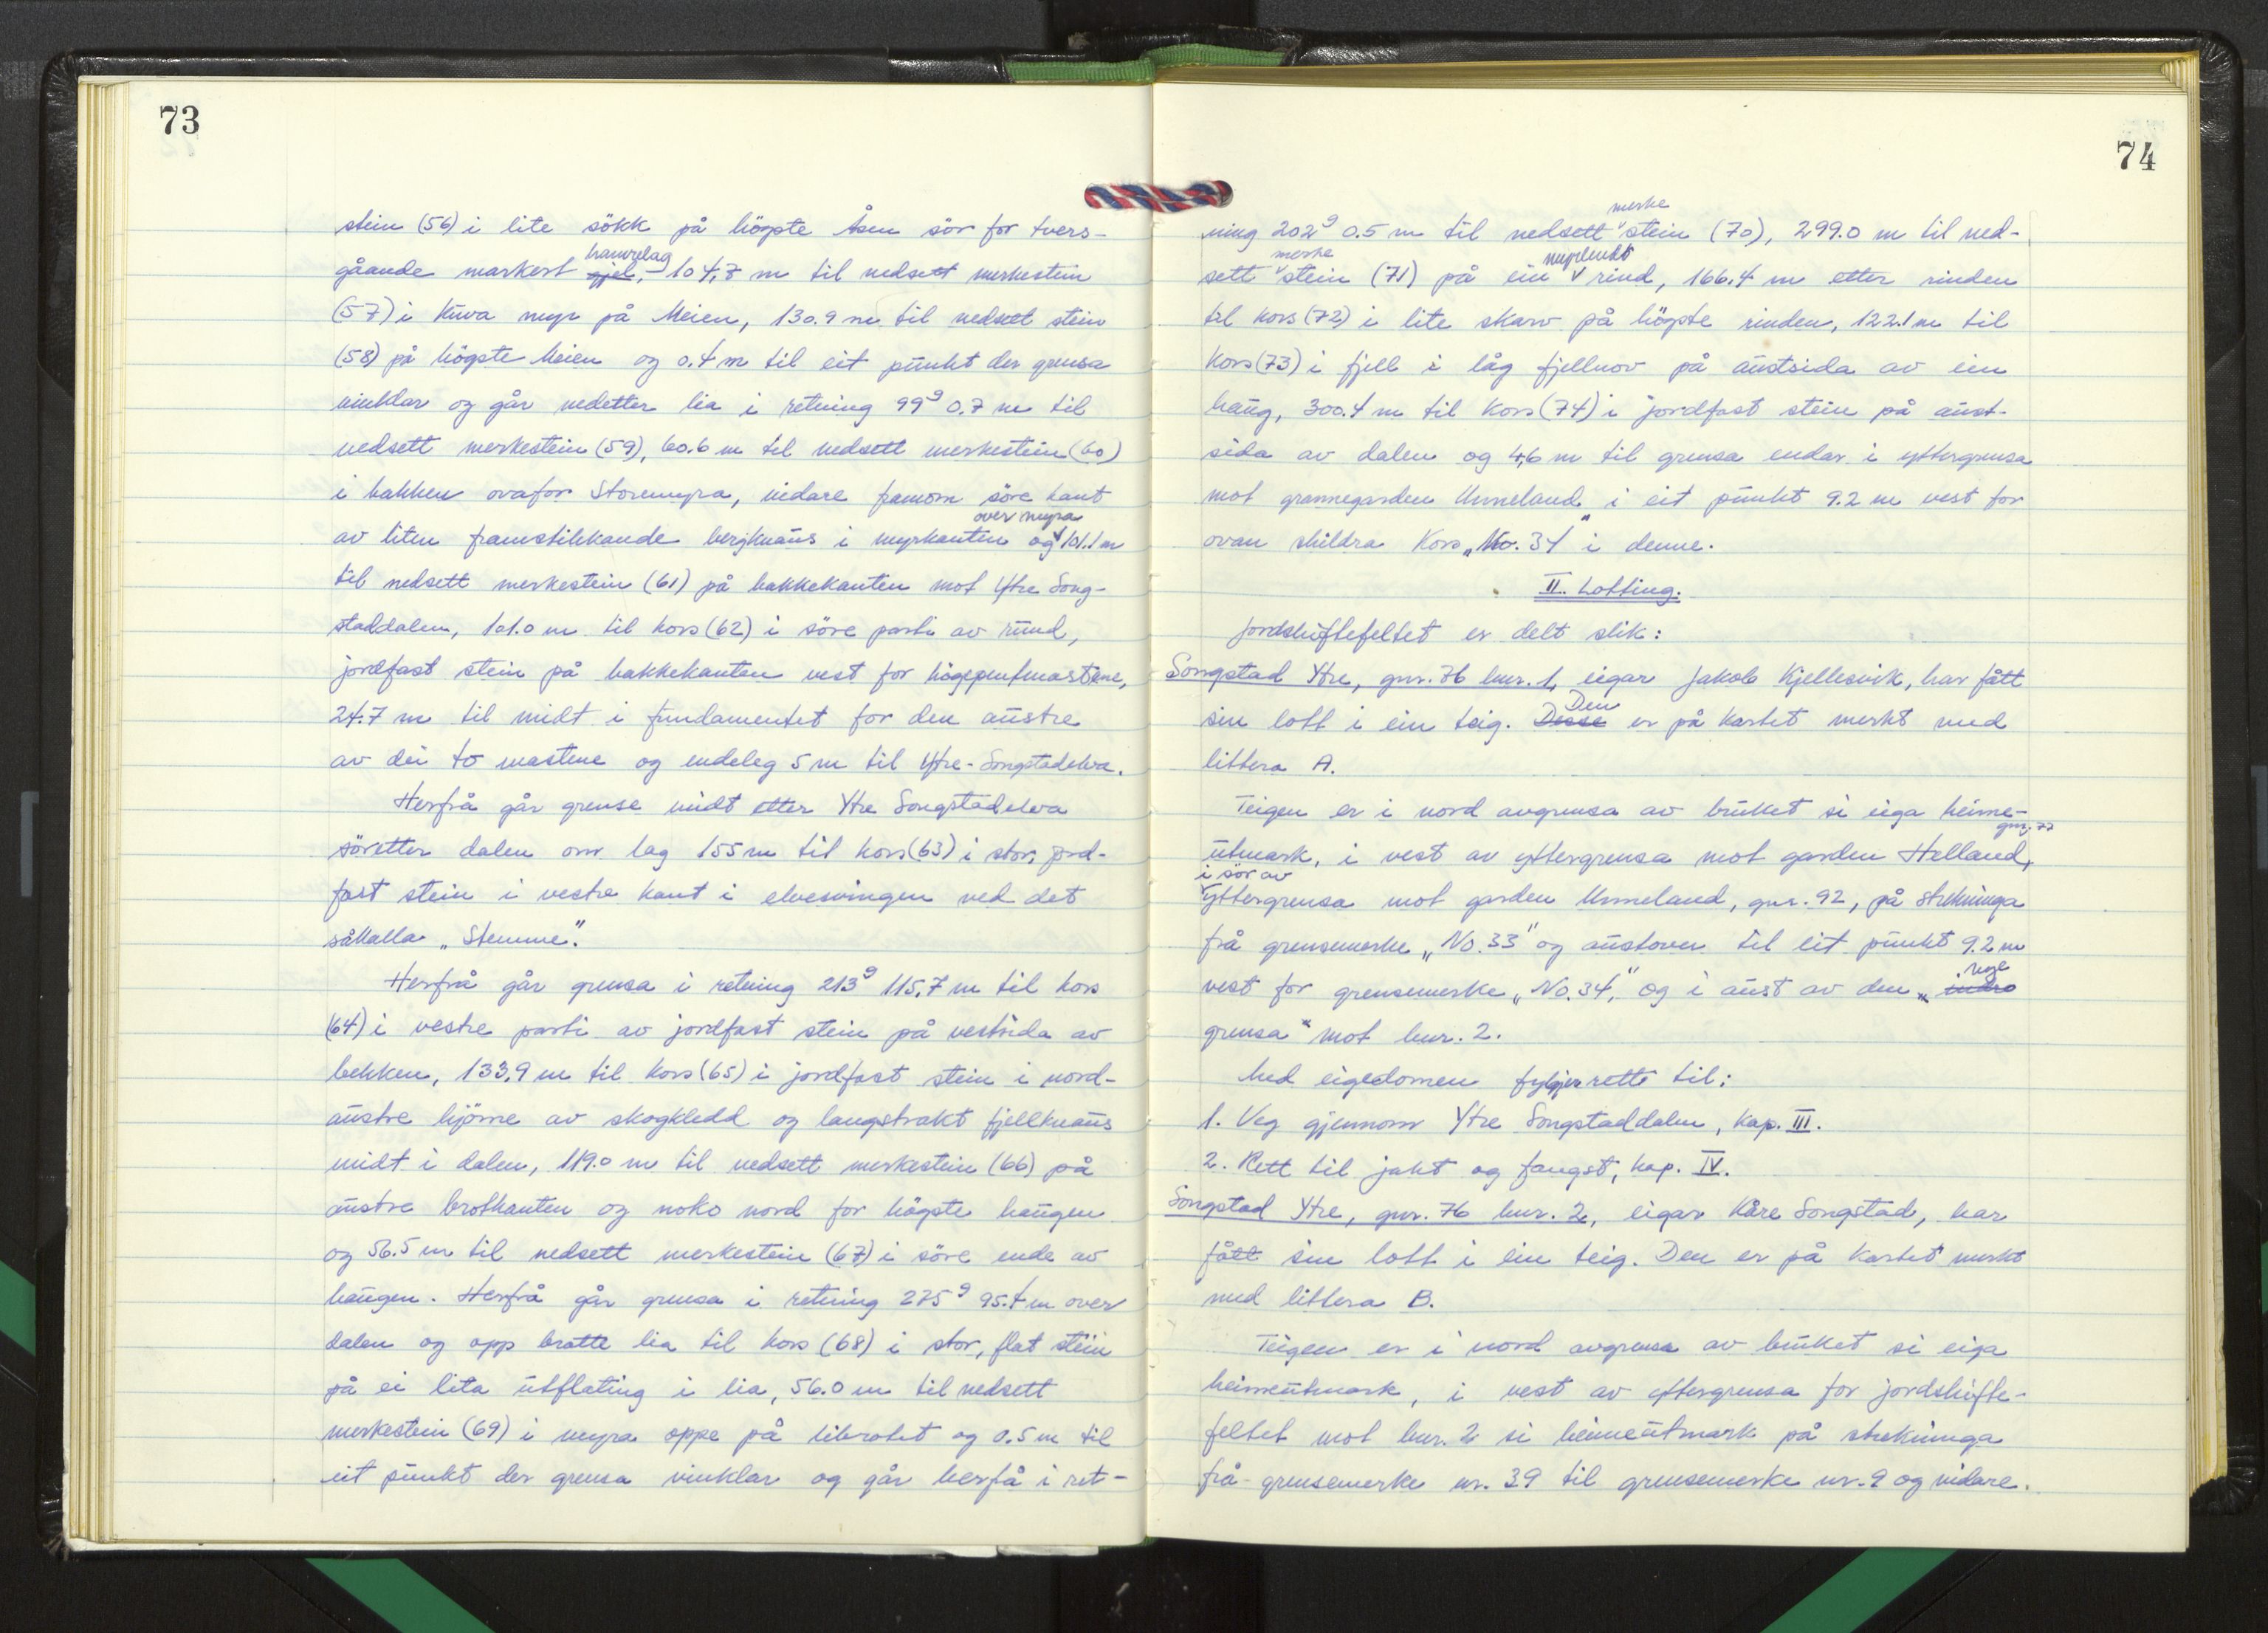 73
stein (56) i lite sökk på högste Åsen sör for tvers-
gåande markert gjel, hamrelag 104,8 m til nedsett merkestein
(57) i Kuva myr på Meien, 130.9 m til nedsett stein
(58) på högste Meien og 0.4 m til eit punkt der grensa
vinklar og går nedetter lia i retning 99g 0.7 m til
nedsett merkestein (59), 60.6 m til nedsett merkestein (60)
i bakken ovafor Storemyra, vidare framom söre kant
av liten framstikkande bergknaus i myrkanten og over myra 101.1 m
til nedsett merkestein (61) på bakkekanten mot Ytre Song-
staddalen, 101.0 m til kors (62) i söre parti av rund,
jordfast stein på bakkekanten vest for högspentmastene,
24.7 m til midt i fundamentet for den austre
av dei to mastene og endeleg 5 m til Ytre-Songstadelva.
Herfrå går grense midt etter Ytre Songstadelva
söretter dalen om lag 155 m til kors (63) i stor, jord-
fast stein i vestre kant i elvesvingen ved det
såkalla „Stemme".
Herfrå går grensa i retning 213g 115,7 m til kors
(64) i vestre parti av jordfast stein på vestsida av
bekken, 133,9 m til kors (65) i jordfast stein i nord-
austre hjörne av skogkledd og langstrakt fjellknaus
midt i dalen, 119.0 m til nedsett merkestein (66) på
austre brotkanten og noko nord for högste haugen
og 56.5 m til nedsett merkestein (67) i söre ende av
haugen. Herfrå går grensa i retning 275g 95.4 m over
dalen og opp bratte lia til kors (68) i stor, flat stein
på ei lita utflating i lia, 56.0 m til nedsett
merkestein (69) i myra oppe på librotet og 0.5 m til
eit punkt der grensa vinklar og går herfå i ret-
74
ning 202g 0.5 m til nedsett merke stein (70), 299.0 m til ned-
sett merke stein (71) på ein myrlendt rind, 166.4 m etter rinden
til kors (72) i lite skarv på högste rinden, 122.1 m til
kors (73) i fjell i låg fjellnov på austsida av ein
haug, 300.4 m til kors (74) i jordfast stein på aust-
sida av dalen og 4,6 m til grensa endar i yttergrensa
mot grannegarden Unneland i eit punkt 9.2 m vest for
ovan skildra Kors „No. 34" i denne.
II. Lotting.
Jordskiftefeltet er delt slik:
Songstad Ytre, gnr. 76 bnr. 1, eigar Jakob Kjellesvik, har fått
sin lott i ein teig. Desse Den er på kartet merkt med
littera A.
Teigen er i nord avgrensa av bruket si eiga heime-
utmark, i vest av yttergrensa mot garden Helland, gnr. 77
i sör av yttergrensa mot garden Unneland, gnr. 92, på strekninga
frå grensemerke „No. 33" og austover til eit punkt 9.2 m
vest for grensemerke „No. 34", og i aust av den „indre nye
grensa" mot bnr. 2.
Med eigedomen fylgjer rett til:
1. Veg gjennom Ytre Songstaddalen, kap. III.
2. Rett til jakt og fangst, kap. IV.
Songstad Ytre, gnr. 76 bnr. 2, eigar Kåre Songstad, har
fått sin lott i ein teig. Den er på kartet merkt
med littera B.
Teigen er i nord avgrensa av bruket si eiga
heimeutmark, i vest av yttergrensa for jordskifte-
feltet mot bnr. 2 si heimeutmark på strekninga
frå grensemerke nr. 39 til grensemerke nr. 9 og vidare.